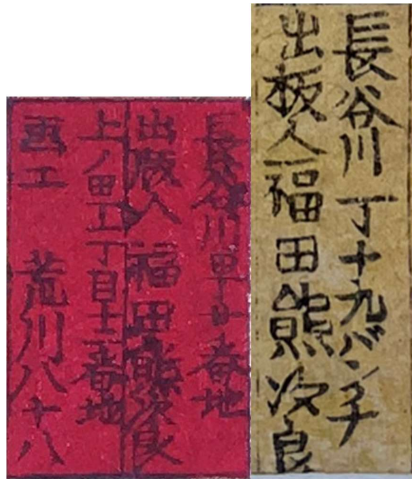 長谷川 丁十九バンチ
出板人福田熊次良
長谷川甼廿番地
出版人 福田熊次良
上ノ甼 丁目十一番地
画工 荒川八十八